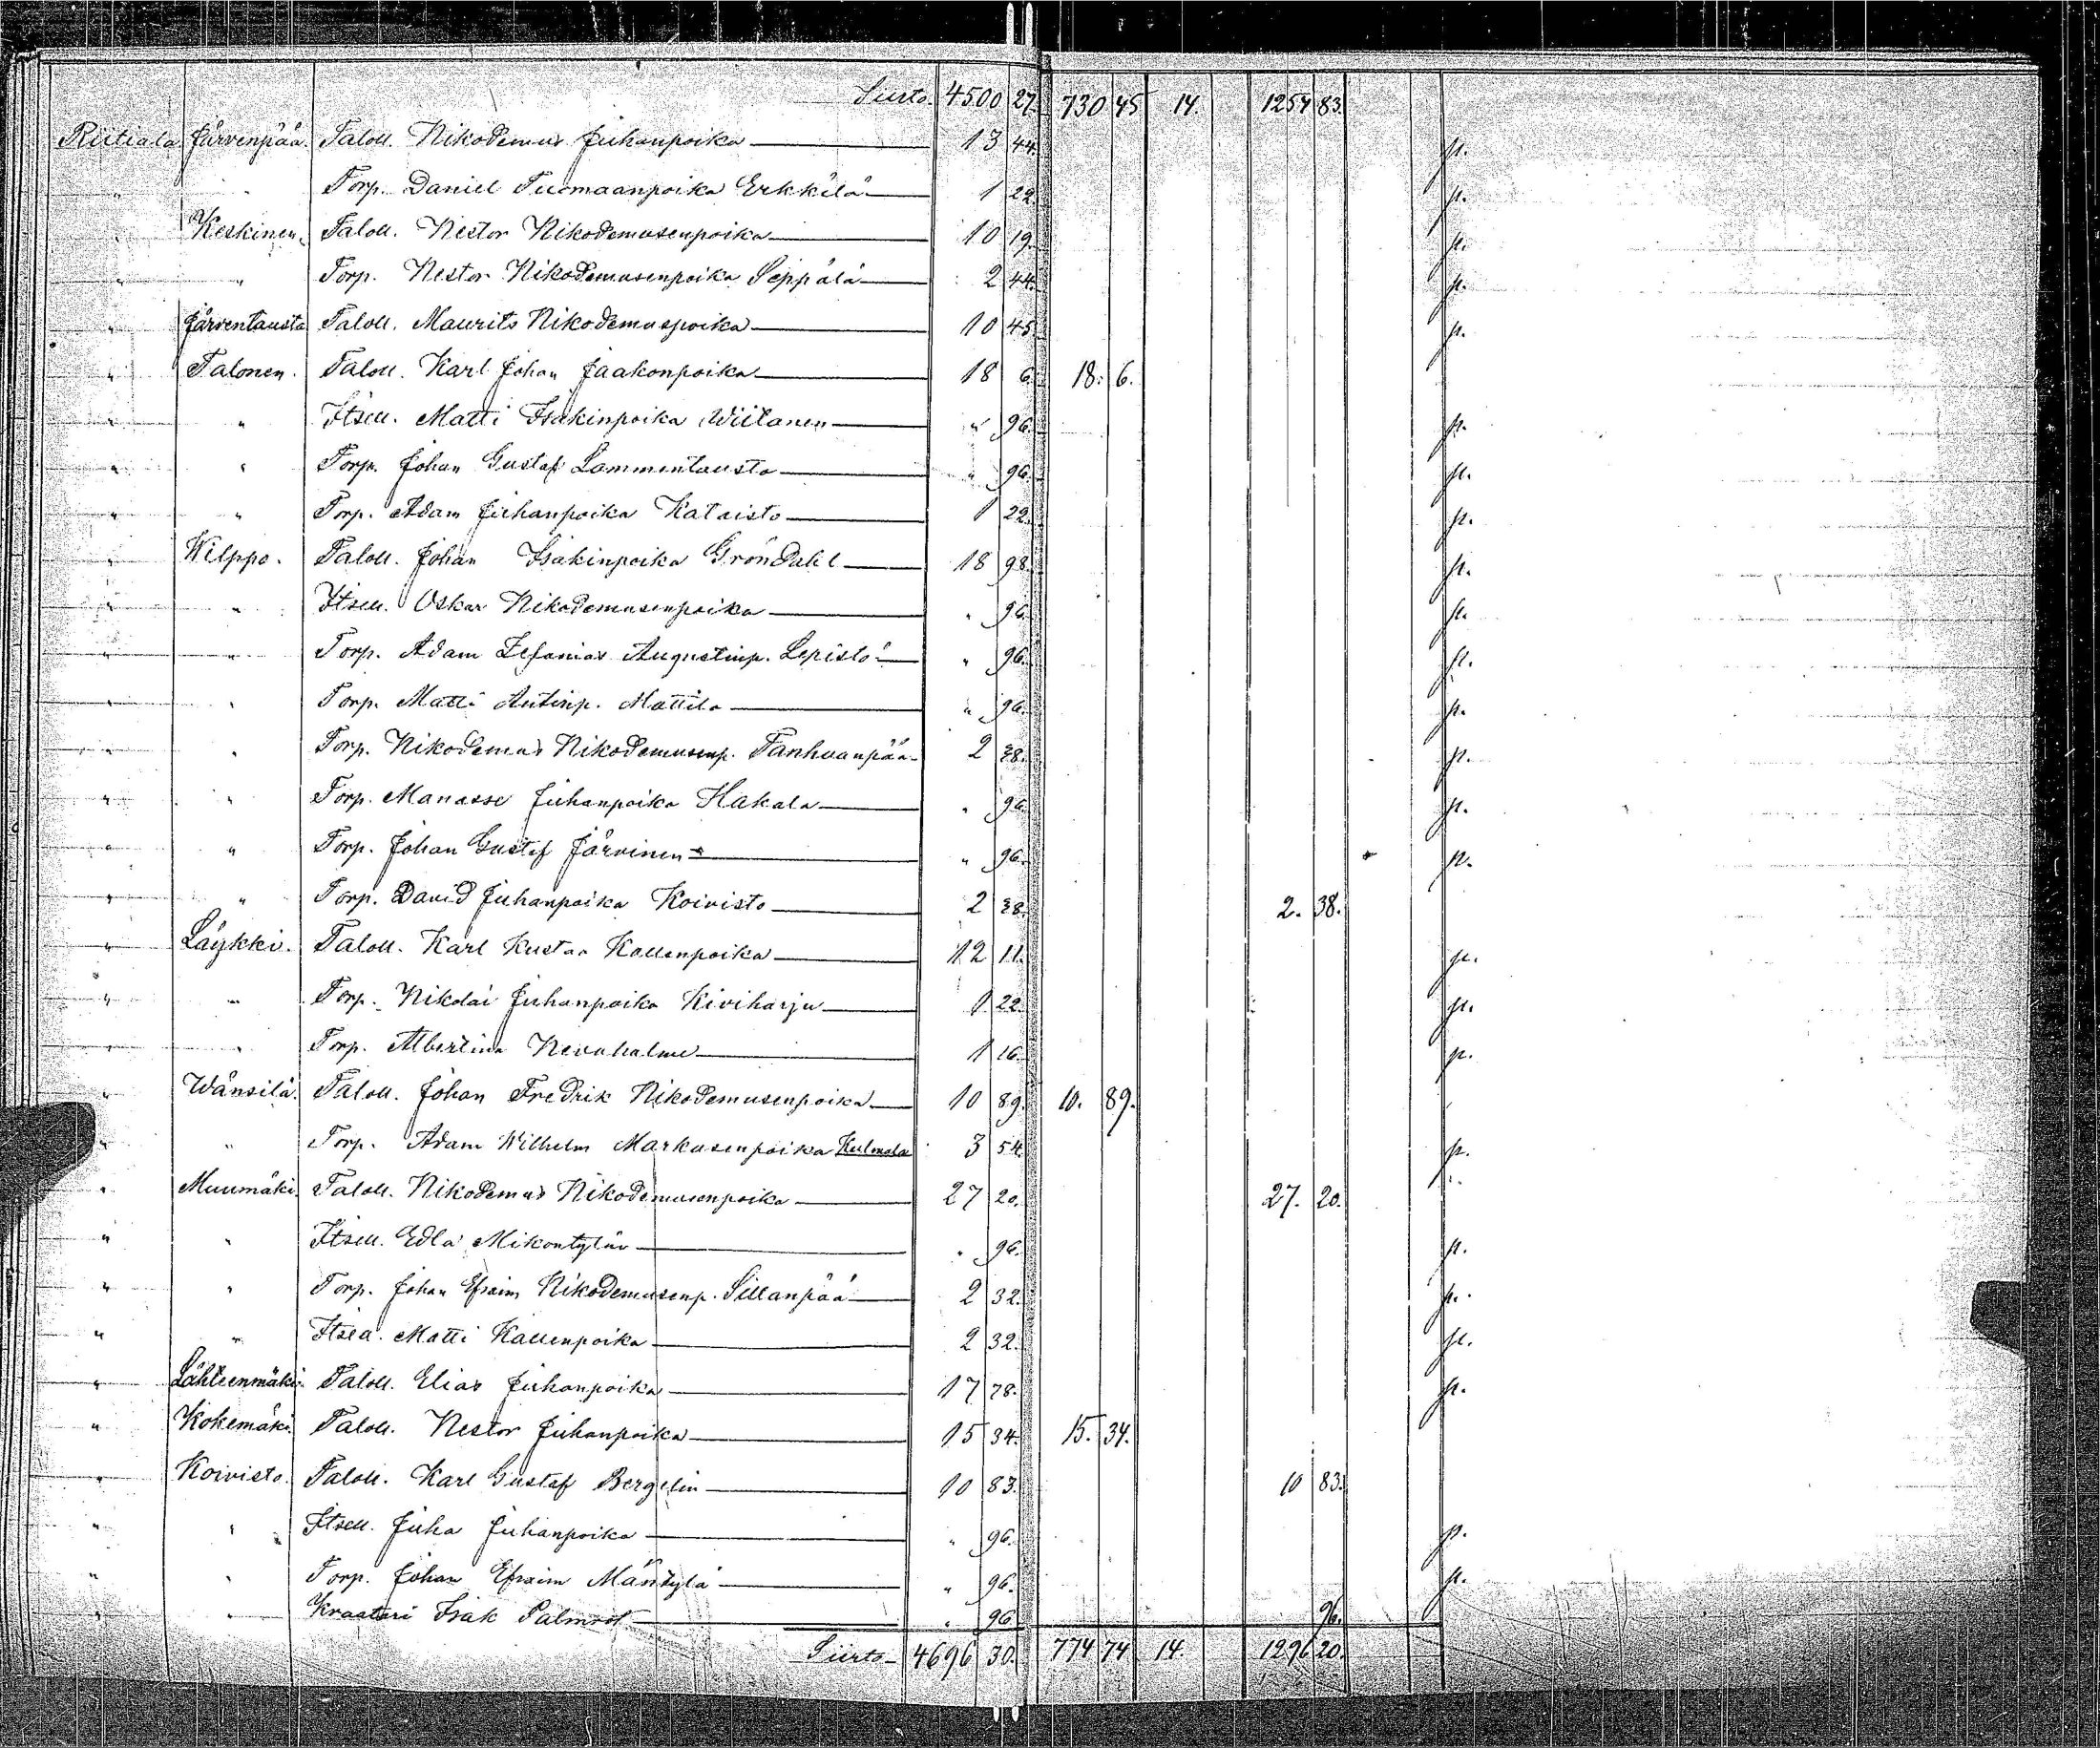 Siirto 4500 27. 730 45 14. 1254 83.
Riitiala Järvenpää. Taloll. Nikodemus Juhanpoika 13 44. p.
" " Torp. Daniel Tuomaanpoika Erkkilä 1 22. p.
" Keskinen. Taloll. Nestor Nikodemusenpoika 10 19. p.
" " Torp. Nestor Nikodemusenpoika Seppälä 2 44. p.
" Järventausta Taloll. Maurits Nikodemuspoika 10 45. p.
" Talonen. Taloll. Karl Johan Jaakonpoika 18 6. 18. 6.
" " Itsell. Matti Isakinpoika Wiitanen " 96. p.
" " Torp. Johan Gustaf Lammentausta " 96. p.
" " Torp. Adam Juhanpoika Kataisto 1 22. p.
" Wilppo. Taloll. Johan Isakinpoika Gröndahl 18 98. p.
" " Itsell. Oskar Nikodemusenpoika " 96. p.
" " Torp. Adam Zefanias Augustinp. Lepistö " 96. p.
" " Torp. Matti Antinp. Mattila " 96. p.
" " Torp. Nikodemus Nikodemusenp. Tanhuanpää 2 38. p.
" " Torp. Manasse Juhanpoika Hakala " 96. p.
" " Torp. Johan Gustaf Järvinen " 96. p.
" " Torp. David Juhanpoika Koivisto 2 38. 2. 38.
" Läykki. Taloll. Karl Kustaa Kallenpoika 12 11. p.
" " Torp. Nikolai Juhanpoika Kiviharju 1 22. p.
" " Torp. Albertina Nevahalme 1 16. p.
Wänsilä. Taloll. Johan Fredrik Nikodemusenpoika 10 89. 10. 89.
" " Torp. Adam Wilhelm Markusenpoika Kulmala 3 54. p.
" Muumäki. Taloll. Nikodemus Nikodemusenpoika 27 20. 27. 20.
" " Itsell. Edla Mikontytär " 96. p.
" " Torp. Johan Efraim Nikodemusenp. Sillanpää 2 32. p.
" " Itsell. Matti Kallenpoika 2 32. p.
" Lähteenmäki. Taloll. Elias Juhanpoika 17 78. p.
" Kokemäki. Taloll. Nestor Juhanpoika 15 34. 15. 34.
" Koivisto. Taloll. Karl Gustaf Bergelin 10 83. 10 83.
" " Itsell. Juha Juhanpoika " 96. p.
" " Torp. Johan Efraim Mäntylä " 96. p.
" " Kraatari Isak Palmrot " 96. 96.
Siirto 4696 30. 774 74 14. 1296 20.